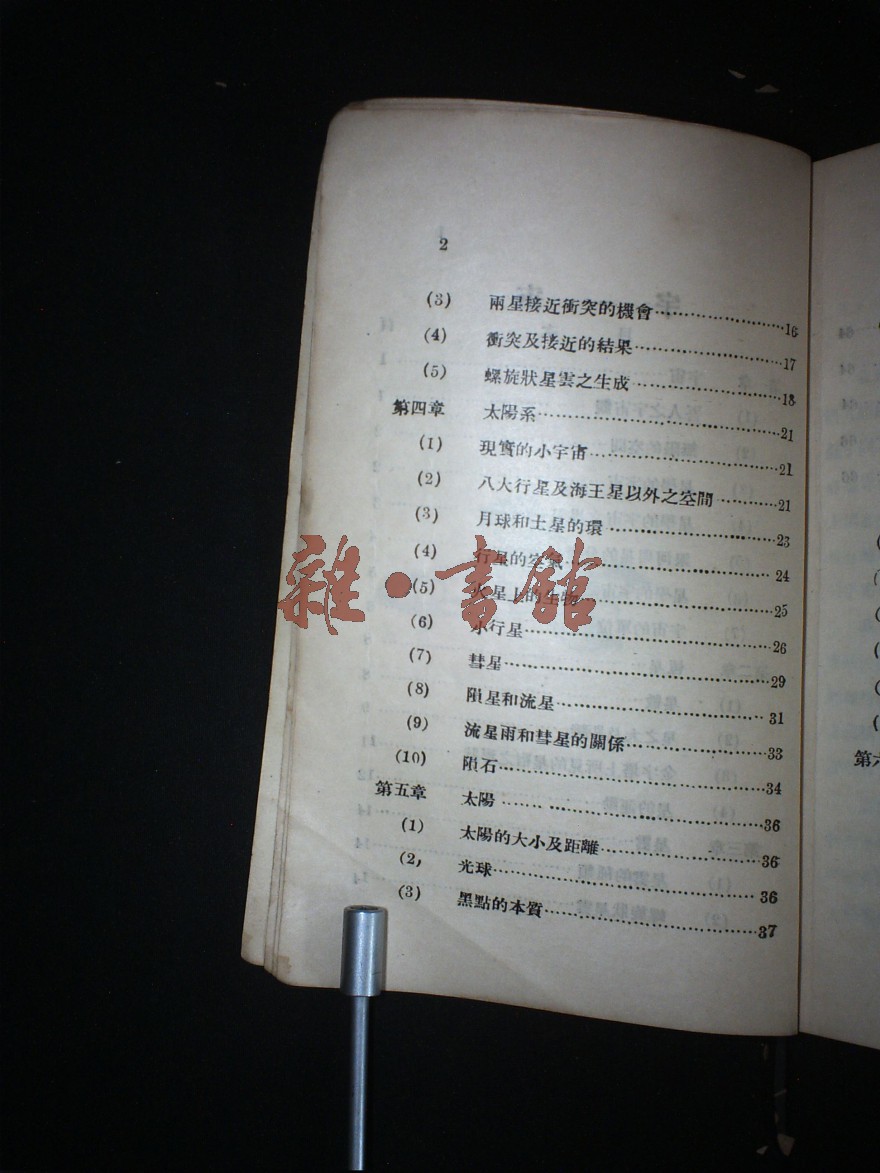 2
(3) 兩星接近衝突的機會……………………16
(4) 衝突及接近的結果……………………17
(5) 螺旋狀星雲之生成……………………18
第四章 太陽系……………………21
(1) 現實的小宇宙……………………21
(2) 八大行星及海王星以外之空間…………21
(3) 月球和土星的環……………………23
(4) 行星的空氣……………………24
(5) 火星上的生物……………………25
(6) 小行星……………………26
(7) 彗星……………………29
(8) 隕星和流星……………………31
(9) 流星雨和彗星的關係……………………33
(10) 隕石……………………34
第五章 太陽……………………36
(1) 太陽的大小及距離……………………36
(2, 光球……………………36
(3) 黑點的本質……………………37
雜·書館
64
64
64
66
第六